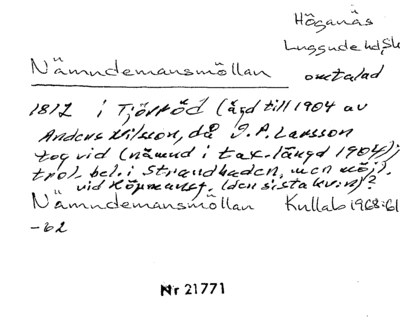 Höganäs
Luggude hd, Sk
Nämndemansmöllan omtalad
1812 i Tjörröd (ägd till 1904 av
Anders Nilsson, då J.P. Larsson
tog vid (nämnd i tax.längd 1904);
trol. bel. i Strandbaden, men möjl.
vid Köpmansg. (den sista kv:n)?
Nämndemansmöllan Kullab 1968:61
-62
Nr 21771